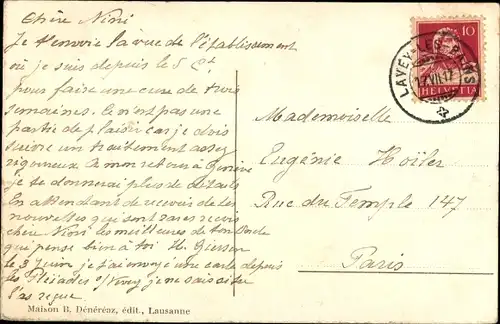 Chère Nini
Je t'envoie la vue de l'établissement
où je suis depuis le 5 ct
pour faire une cure de trois
semaines. Ce n'est pas une
partie de plaisir car je dois
suivre un traitement assez
rigoureux. A mon retour à Genève
je te donnerai plus de détails
En attendant de recevoir de tes
nouvelles qui sont rares reçois
chère Nini les meilleures de ton Oncle
qui pense bien à toi H. Giersen
le 3 Juin je t'ai envoyé une carte depuis
les Pléiades s/Vevey je ne sais si tu
l'as reçue
Maison B. Dénéréaz, édit., Lausanne
10
HELVETIA
LAVEY-LES-BAINS
VII.17
Mademoiselle
Eugénie Hoïler
Rue du Temple 147
Paris